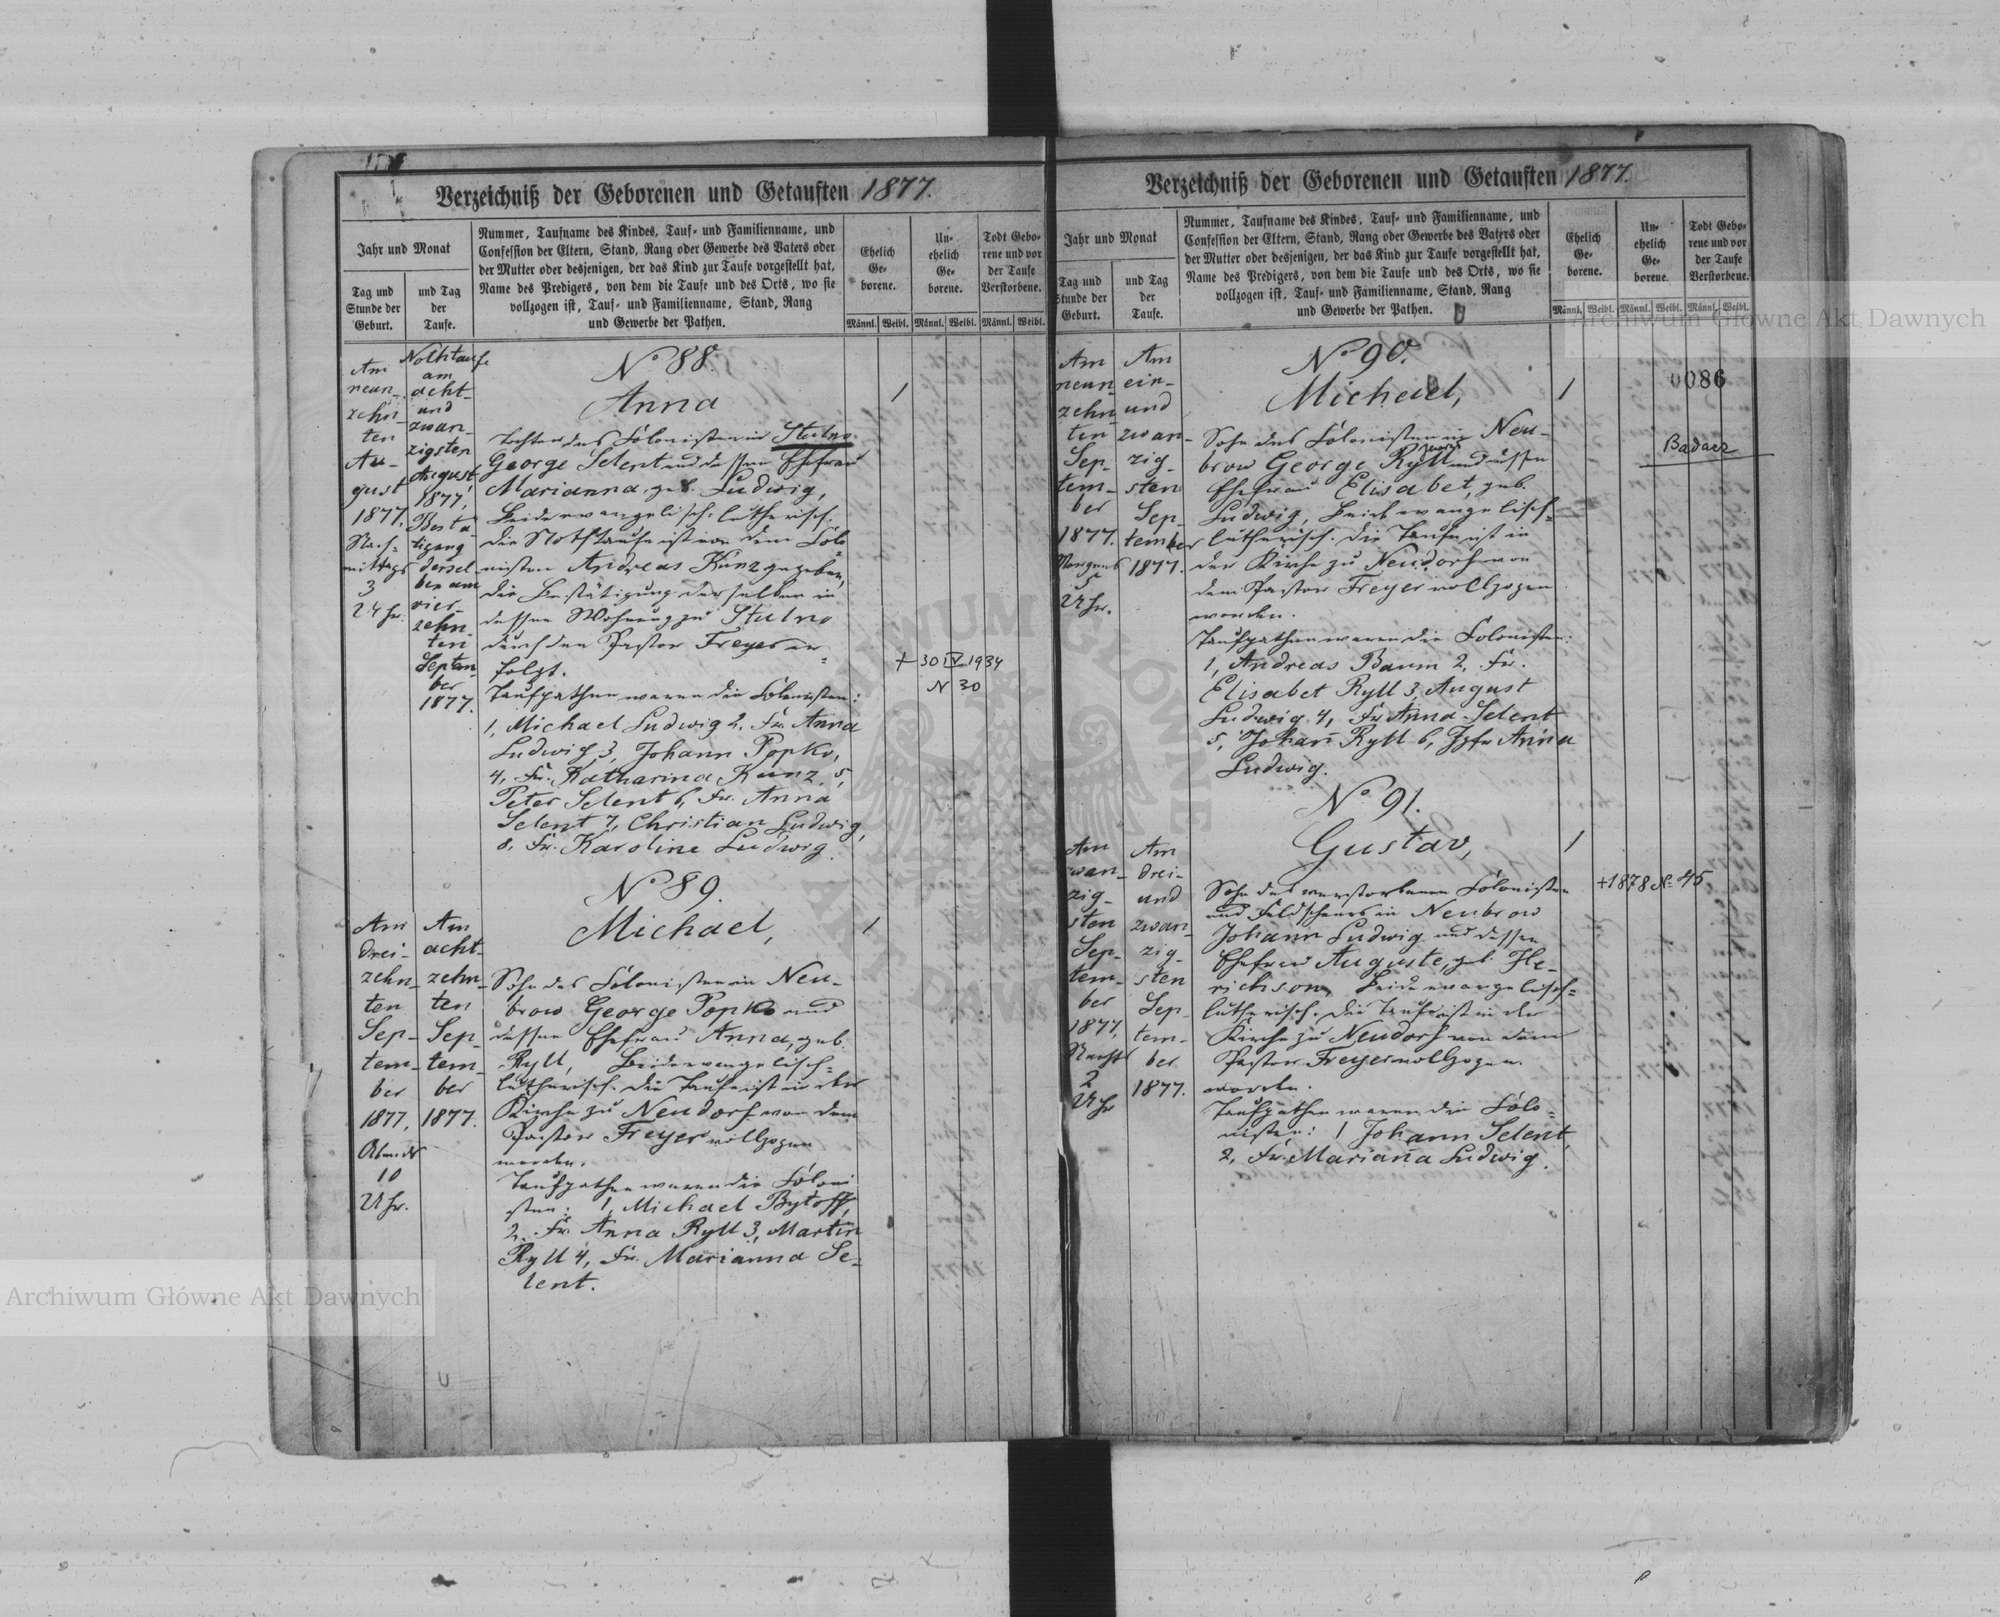 Verzeichniß der Geborenen und Getauften 1877.
Jahr und Monat
Tag und
Stunde der
Geburt.
und Tag
der
Taufe.
Nummer, Taufname des Kindes, Tauf- und Familienname, und
Confession der Eltern, Stand, Rang oder Gewerbe des Vaters oder
der Mutter oder desjenigen, der das Kind zur Taufe vorgestellt hat,
Name des Predigers, von dem die Taufe und des Orts, wo sie
vollzogen ist, Tauf- und Familienname, Stand, Rang
und Gewerbe der Pathen.
Ehelich
Ge-
borene.
Un-
ehelich
Ge-
borene.
Todt Gebo-
rene und vor
der Taufe
Verstorbene.
Männl. Weibl. Männl. Weibl. Männl. Weibl.
Am
neun-
zehn-
ten
Au-
gust
1877.
Nach-
mittags
3
Uhr.
Nothtaufe
am
acht-
und
zwan-
zigsten
August
1877,
Bestä-
tigung
dersel-
ben am
vier-
zehn-
ten
Septem-
ber
1877.
No 88.
Anna
Tochter des Colonisten in Stulno
George Selent und dessen Ehefrau
Marianna, geb. Ludwig,
Beide evangelisch-lutherisch.
Die Nothtaufe ist von dem Colo-
nisten Andreas Kunz gegeben,
die Bestätigung derselben in
dessen Wohnung zu Stulno
durch den Pastor Freyer er-
folgt.
Taufpathen waren die Colonisten:
1, Michael Ludwig 2, Fr. Anna
Ludwig 3, Johann Popko,
4, Fr. Katharina Kunz, 5,
Peter Selent 6, Fr. Anna
Selent 7, Christian Ludwig,
8, Fr. Karoline Ludwig.
1
+ 30 IV 1934
N 30
Am
drei-
zehn-
ten
Sep-
tem-
ber
1877,
Abends
10
Uhr.
Am
acht-
zehn-
ten
Sep-
tem-
ber
1877.
No 89.
Michael,
Sohn des Colonisten in Neu-
brow George Popko und
dessen Ehefrau Anna, geb.
Ryll, Beide evangelisch-
lutherisch. Die Taufe ist in der
Kirche zu Neudorf von dem
Pastor Freyer vollzogen
worden.
Taufpathen waren die Coloni-
sten: 1, Michael Bytoff,
2. Fr. Anna Ryll 3, Martin
Ryll 4, Fr. Marianna Se-
lent.
1
Verzeichniß der Geborenen und Getauften 1877.
Jahr und Monat
Tag und
Stunde der
Geburt.
und Tag
der
Taufe.
Nummer, Taufname des Kindes, Tauf- und Familienname, und
Confession der Eltern, Stand, Rang oder Gewerbe des Vaters oder
der Mutter oder desjenigen, der das Kind zur Taufe vorgestellt hat,
Name des Predigers, von dem die Taufe und des Orts, wo sie
vollzogen ist, Tauf- und Familienname, Stand, Rang
und Gewerbe der Pathen.
Ehelich
Ge-
borene.
Un-
ehelich
Ge-
borene.
Todt Gebo-
rene und vor
der Taufe
Verstorbene.
Männl. Weibl. Männl. Weibl. Männl. Weibl.
Archiwum Główne Akt Dawnych
0086
Am
neun
zehn
ten
Sep-
tem-
ber
1877.
Morgens
5
Uhr.
Am
ein-
und
zwan-
zig-
sten
Sep-
tember
1877.
No 90.
Michael,
Sohn des Colonisten in Neu-
brow George Ryll und dessen
Ehefrau Elisabet, geb.
Ludwig, Beide evangelisch-
lutherisch. Die Taufe ist in
der Kirche zu Neudorf von
dem Pastor Freyer vollzogen
worden.
Taufpathen waren die Colonisten:
1, Andreas Baum 2, Fr.
Elisabet Ryll 3, August
Ludwig 4, Fr. Anna Selent
5, Johann Ryll 6, Jgfr Anna
Ludwig.
1
Am
zwan-
zig-
sten
Sep-
tem-
ber
1877,
Nachts
2
Uhr
Am
drei-
und
zwan-
zig-
sten
Sep-
tem-
ber
1877.
No 91.
Gustav,
Sohn des verstorbenen Colonisten
und Feldscheers in Neubrow
Johann Ludwig und dessen
Ehefrau Auguste, geb. He-
richson, Beide evangelisch-
lutherisch. Die Taufe ist in der
Kirche zu Neudorf von dem
Pastor Freyer vollzogen
worden.
Taufpathen waren die Colo-
nisten: 1 Johann Selent,
2, Fr. Marianna Ludwig.
1
+1878 N. 45
Archiwum Główne Akt Dawnych